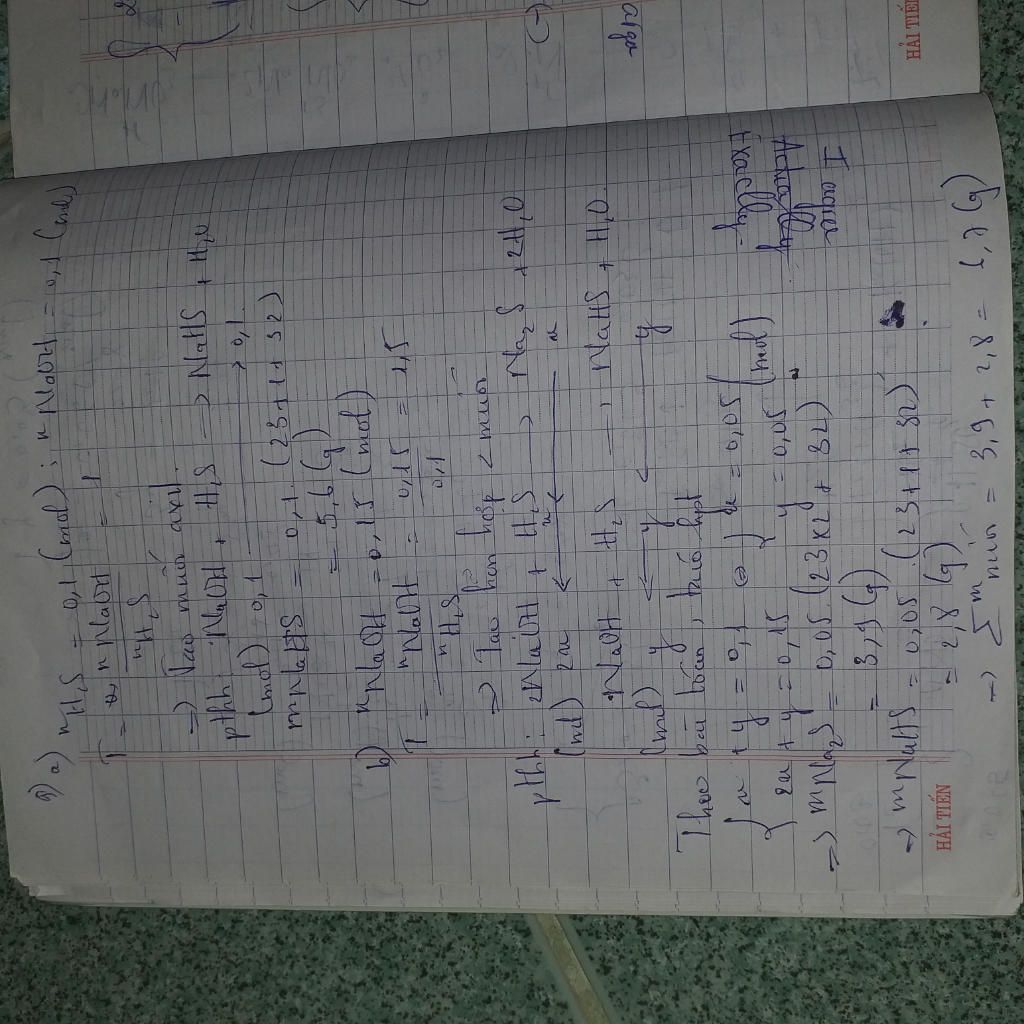 a) nH₂S = 0,1 (mol) ; nNaOH = 0,1 (mol)
T = nNaOH / nH₂S = 1
=> Tạo muối axit.
pthh: NaOH + H₂S -> NaHS + H₂O
(mol) 0,1 -> 0,1
mNaHS = 0,1. (23+1+32)
= 5,6 (g)
b) nNaOH = 0,15 (mol)
T = nNaOH / nH₂S = 0,15 / 0,1 = 1,5
=> Tạo hỗn hợp 2 muối
pthh: 2NaOH + H₂S -> Na₂S + 2H₂O
(mol) 2x <- x <- x
NaOH + H₂S -> NaHS + H₂O
(mol) y <- y <- y
Theo bài toán, ta có hpt
{ x + y = 0,1 <=> { x = 0,05 (mol)
{ 2x + y = 0,15 { y = 0,05
=> mNa₂S = 0,05. (23x2 + 32)
= 3,9 (g)
=> mNaHS = 0,05. (23+1+32)
= 2,8 (g)
=> ∑ m muối = 3,9 + 2,8 = 6,7 (g)
Exactly
Actually
I agree
HẢI TIẾN
HẢI TIẾN